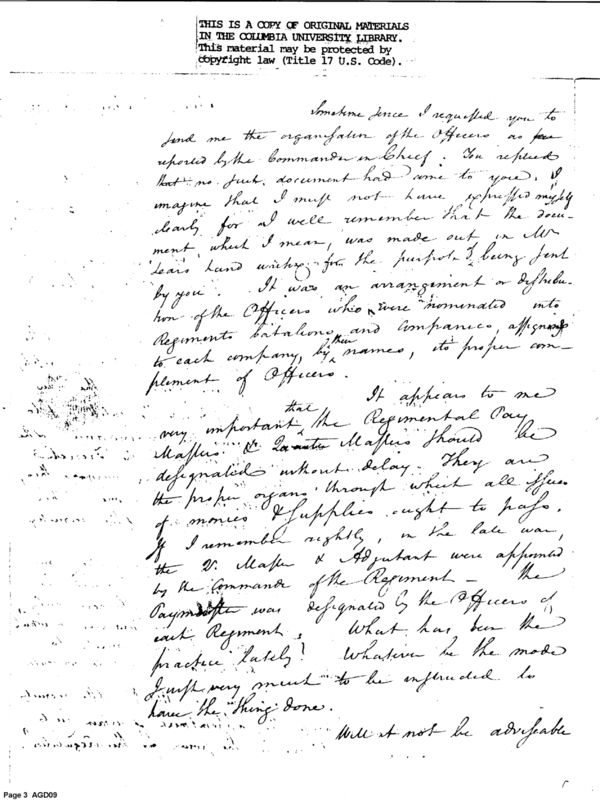 THIS IS A COPY OF ORIGINAL MATERIALS
IN THE COLUMBIA UNIVERSITY LIBRARY.
This material may be protected by
copyright law (Title 17 U.S. Code).
Sometime sence I requested you to
send me the organisation of the Officers as
reported by the Commander in Chief. You replied
that no such document had come to you. I
imagine that I must not have expressed myself
clearly for I well remember that the docu-
ment which I mean, was made out in Mr
Lears hand writing for the purpose of being sent
by you. It was an arrangement or distribu-
tion of the Officers who were nominated into
Regiments batalions and companies, assigning
to each company, by their names, its proper com-
plement of Officers.
It appears to me
very important that the Regimental Pay
Masters & Quarter Masters should be
designated without delay. They are
the proper organs through which all issues
of monies & supplies ought to pass.
If I remember rightly, in the late war,
the Q. Master & Adjutant were appointed
by the Commander of the Regiment - the
Paymaster was designated by the Officers of
each Regiment. What has been the
practice lately? Whatever be the mode
I wish very much to be instructed to
have the thing done.
Will it not be adviseable
Page 3 AGD09